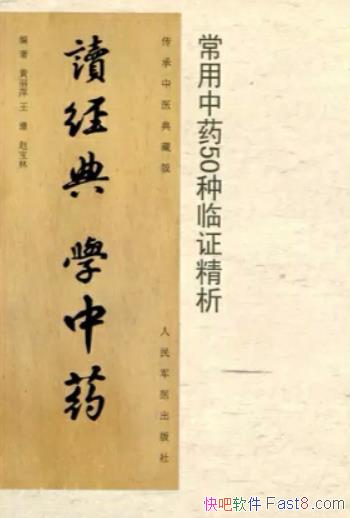 常用中药50种临证精析
传承中医典藏版
人民军医出版社
读經典 學中药
编著 黄丽萍 王 赵宝林
快吧软件 Fast8.com